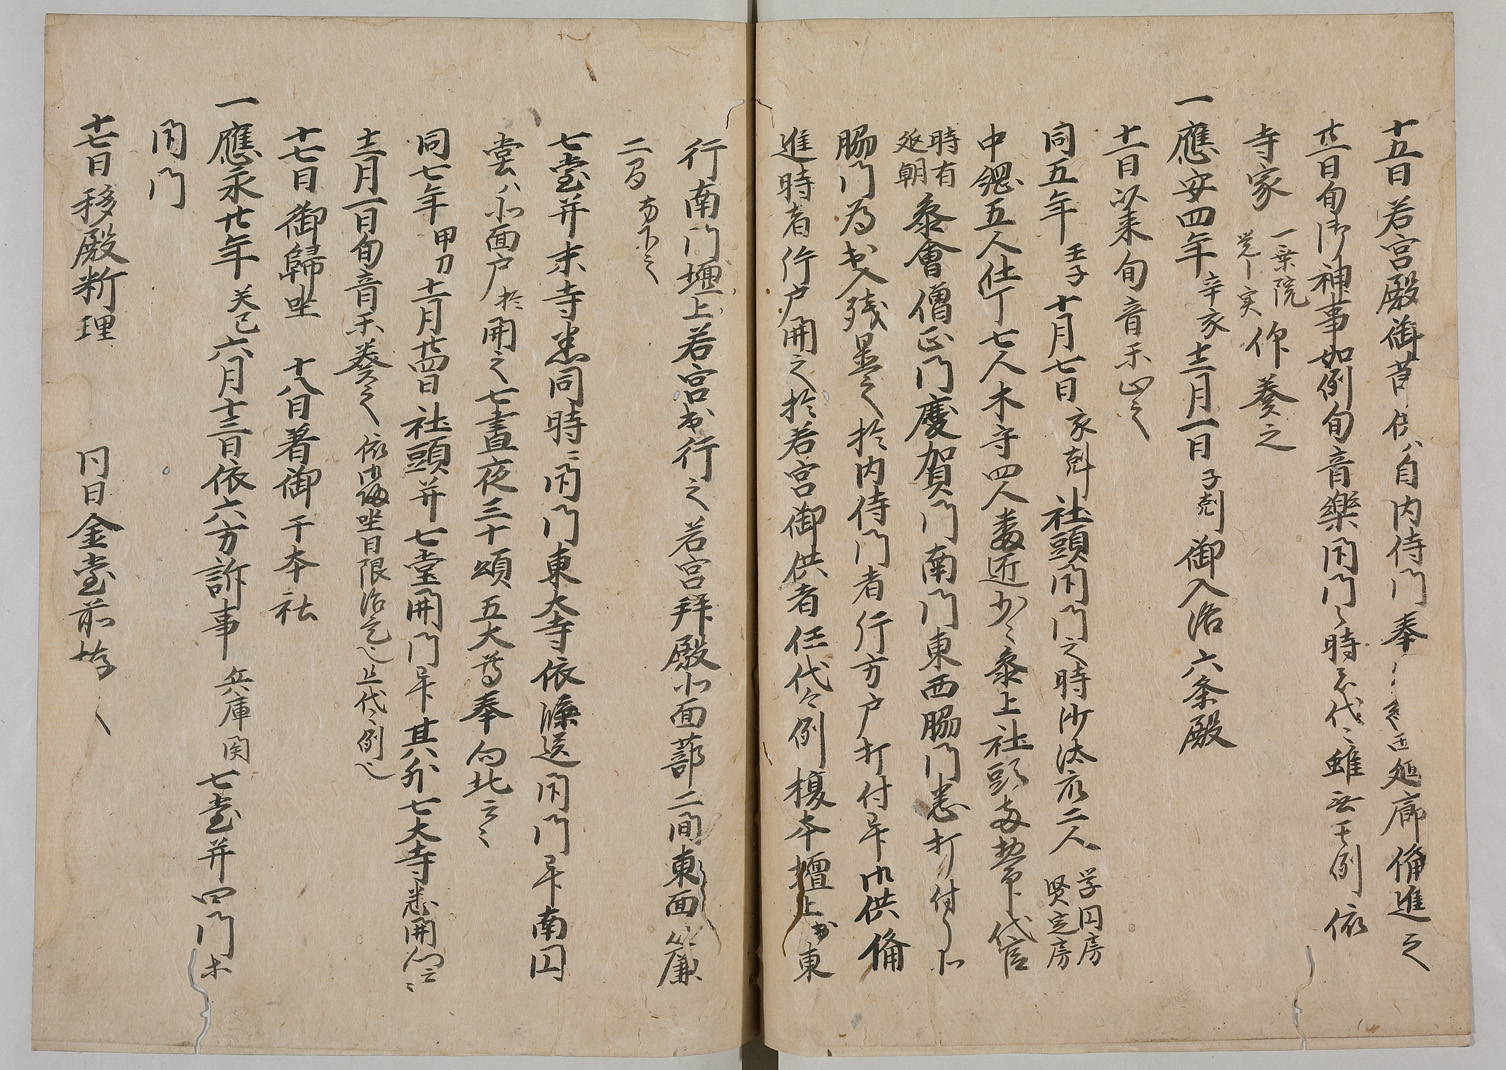 十五日若宮殿御菅供ハ自内侍門奉廻廊備進之
廿一日旬御神事如例旬音樂閉門之時不代々雖無其例依
寺家一乗院覚実仰奏之
一應安四年辛亥十二月一日子剋御入洛六条殿
十一日以来旬音楽止之
同五年壬子十月七日亥剋社頭閉門之時沙汰衆二人学円房賢定房
中綱五人仕丁七人木守四人妻近少々参上社頭両惣官代官
時有延朝参會僧正門慶賀門南門東西脇門悉打付了
脇門為出入残置之於内侍門者行方戸打付畢御供備
進時者件戸開之於若宮御供者任代々例榎本壇上出東
行南門壇上若宮出行之若宮拝殿北面蔀二間東面簾
二間
七堂并末寺悉同時ニ閉門東大寺依牒送閉門畢南円
堂ハ北面戸於開之七晝夜三十頌五大尊奉向北云々
同七年甲刀十二月廿四日社頭并七堂開門畢其外七大寺悉開門云々
十二月一日旬音楽奏之依御歸坐日限治定也且代々例也
十七日御歸坐 十八日著御于本社
一應永廿年癸巳六月十三日依六方訴事兵庫関七堂并四門等
閉門
十七日移殿断理 同日金堂前